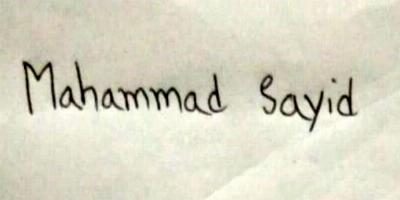 Mahammad Sayid